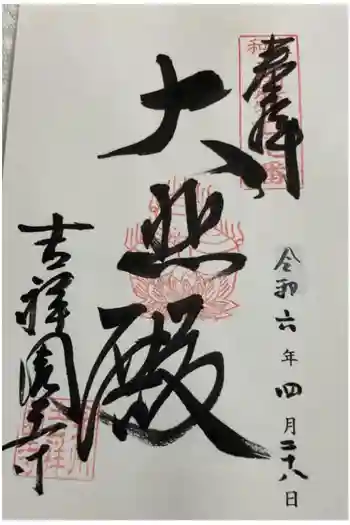 奉拝
令和六年四月二十八日
大悲殿
吉祥園寺